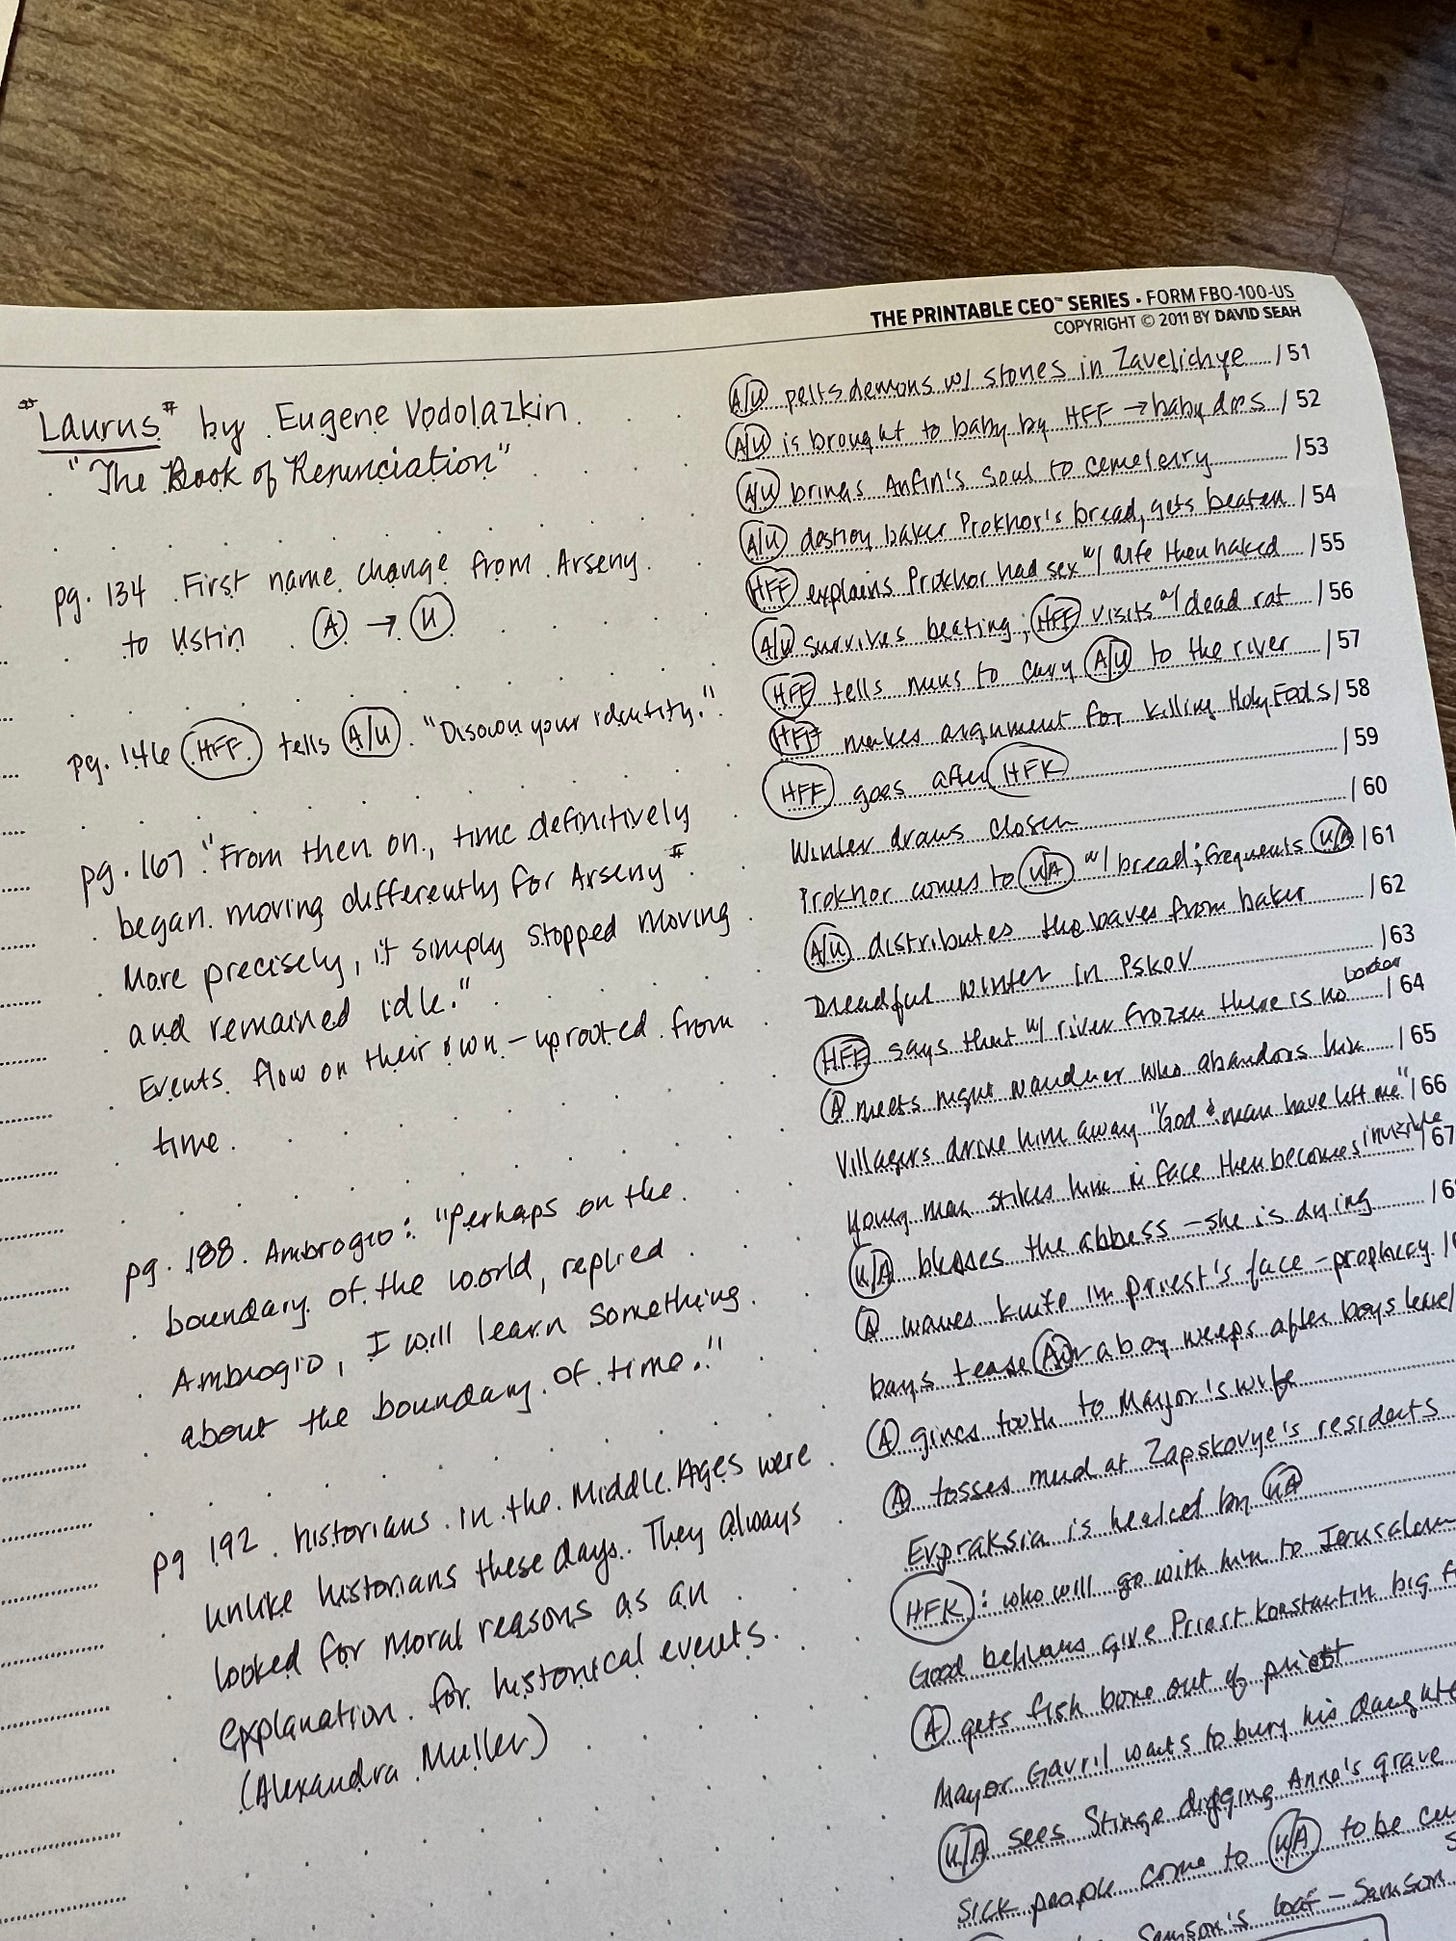 THE PRINTABLE CEO™ SERIES • FORM FBO-100-US
COPYRIGHT © 2011 BY DAVID SEAH
"Laurus" by Eugene Vodolazkin
"The Book of Renunciation"
pg. 134 First name change from Arseny
to Ustin (A) → (U)
pg. 146 (HFF) tells (A/U) "Disown your identity."
pg. 167 "From then on, time definitively
began moving differently for Arseny".
More precisely, it simply stopped moving
and remained idle."
Events flow on their own – uprooted from
time.
pg. 188. Ambrogio: "Perhaps on the
boundary of the world, replied
Ambrogio, I will learn something
about the boundary of time."
pg 192. historians in the Middle Ages were
unlike historians these days. They always
looked for moral reasons as an
explanation for historical events.
(Alexandra Muller)
(A/U) pelts demons w/ stones in Zavelichye /51
(A/U) is brought to baby by HFF → baby dies /52
(A/U) brings Anfin's soul to cemetery /53
(A/U) destroy baker Prokhor's bread, gets beaten /54
(HFF) explains Prokhor had sex w/ wife then baked /55
(A/U) survives beating; (HFF) visits w/ dead rat /56
(HFF) tells nuns to carry (A/U) to the river /57
(HFF) makes argument for killing Holy Fools /58
(HFF) goes after (HFK) /59
Winter draws closer /60
Prokhor comes to (U/A) w/ bread; frequents (U/A) /61
(A/U) distributes the loaves from baker /62
Dreadful winter in Pskov /63
(HFF) says that w/ river frozen there is no border /64
(A) meets night wanderer who abandons him /65
Villagers drive him away "God & man have left me" /66
Young man strikes him in face then becomes invisible /67
(U/A) blesses the abbess – she is dying /6
(A) waves knife in priest's face – prophecy /
boys tease (A/U) a boy weeps after boys leave
(A) gives tooth to Mayor's wife
(A) tosses mud at Zapskovye's residents
Evpraksia is healed by (UA)
(HFK): who will go with him to Jerusalem
Good believers give Priest Konstantin big f
(A) gets fish bone out of priest
Mayor Gavril wants to bury his daughte
(U/A) sees Stinge digging Anna's grave
Sick people come to (U/A) to be cu
Samson's loaf – Samson